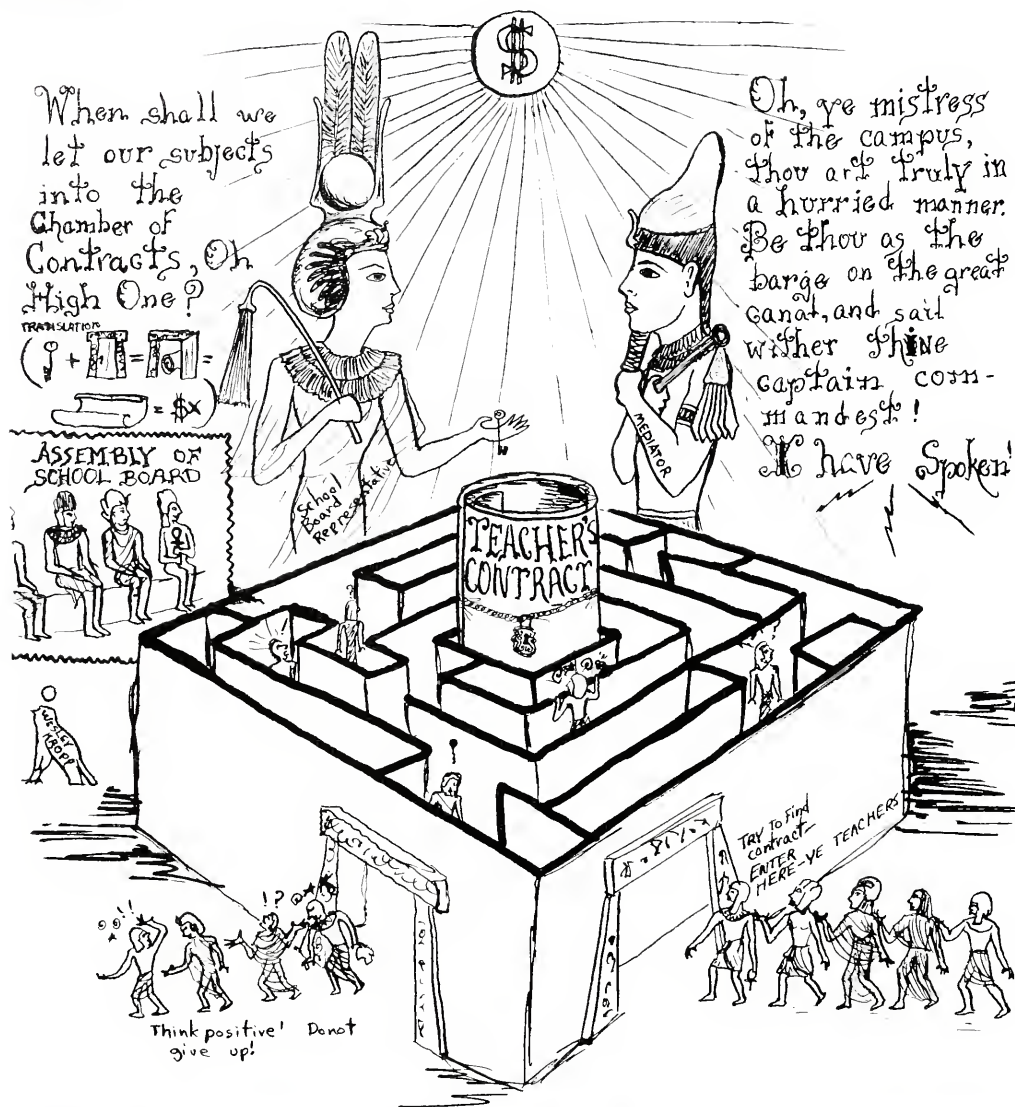 $
When shall we
let our subjects
into the
Chamber of
Contracts, Oh
High One?
TRANSLATION
( + = =
= $x)
Oh, ye mistress
of the campus,
thou art truly in
a hurried manner.
Be thou as the
barge on the great
canal, and sail
wither thine
captain com-
mandest!
I have Spoken!
School
Board
Representative
MEDIATOR
ASSEMBLY OF
SCHOOL BOARD
TEACHER'S
CONTRACT
WESLEY
KROPP
TRY TO FIND
contract—
ENTER
HERE-YE TEACHERS
!!
!?
Think positive! Donot
give up!